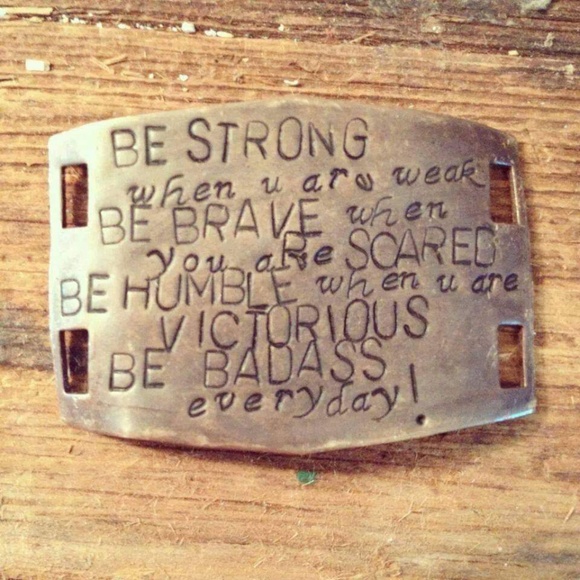 BE STRONG
when u are weak
BE BRAVE when
you are SCARED
BE HUMBLE when u are
VICTORIOUS
BE BADASS
everyday!